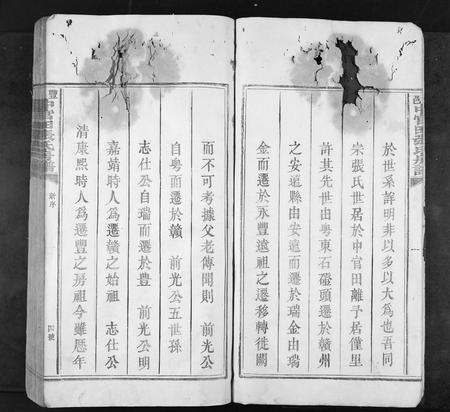 於世系詳明非以多以大為也吾同
宗張氏世居於中官田離予居僅里
許其先世由粵東石磴頭遷於贛州
之安遠縣由安遠而遷於瑞金由瑞
金而遷於永豐遠祖之遷移轉徙闕
而不可考據父老傳聞則 前光公
自粵而遷於贛 前光公五世孫
志仕公自瑞而遷於豐 前光公明
嘉靖時人為遷贛之始祖 志仕公
清康熙時人為遷豐之房祖今雖歷年
新序
四號